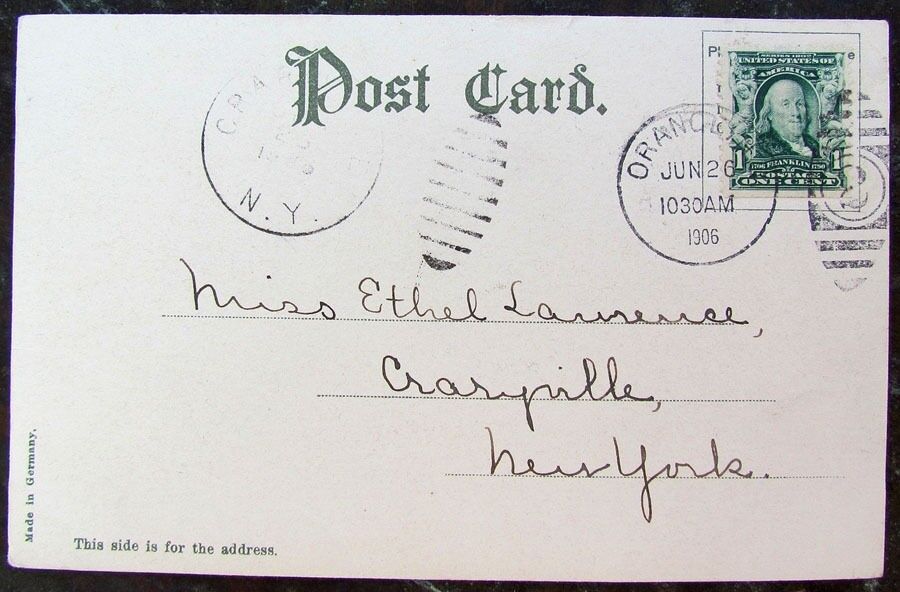 Post Card.
SERIES 1902
UNITED STATES OF
AMERICA
1 1
1706 FRANKLIN 1790
POSTAGE
ONE CENT
ORANGE
JUN 26
1030AM
1906
N.Y.
Miss Ethel Lawrence,
Craryville,
New York.
Made in Germany.
This side is for the address.